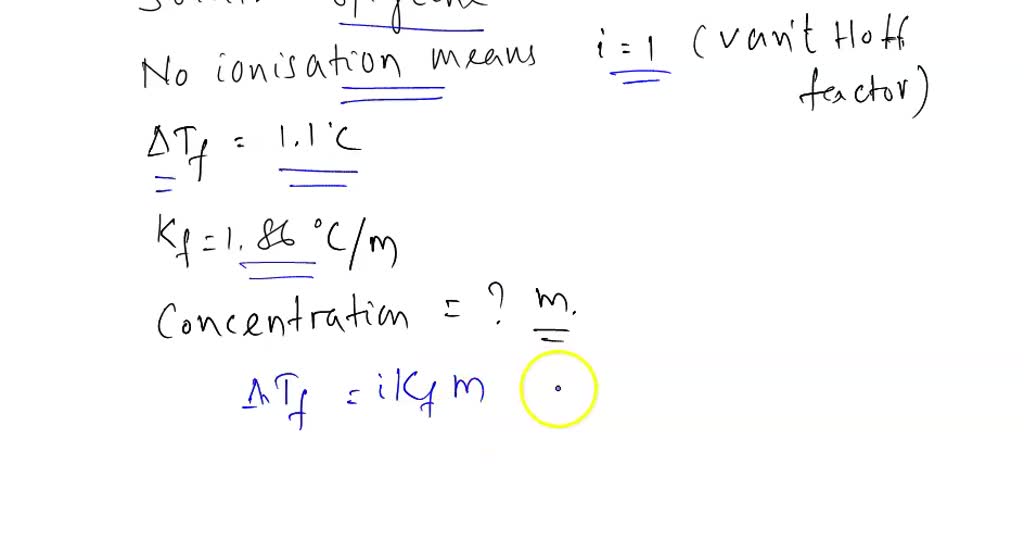 No ionisation means i = 1 (Van't Hoff factor)
ΔTf = 1.1°C
Kf = 1.86 °C/m
Concentration = ? m.
ΔTf = i Kf m